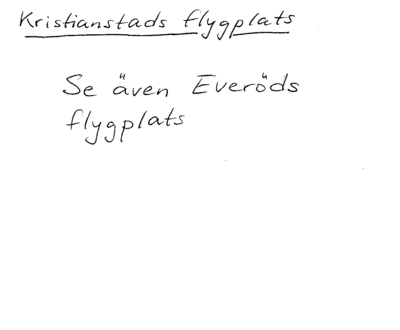 Kristianstads flygplats
Se även Everöds
flygplats